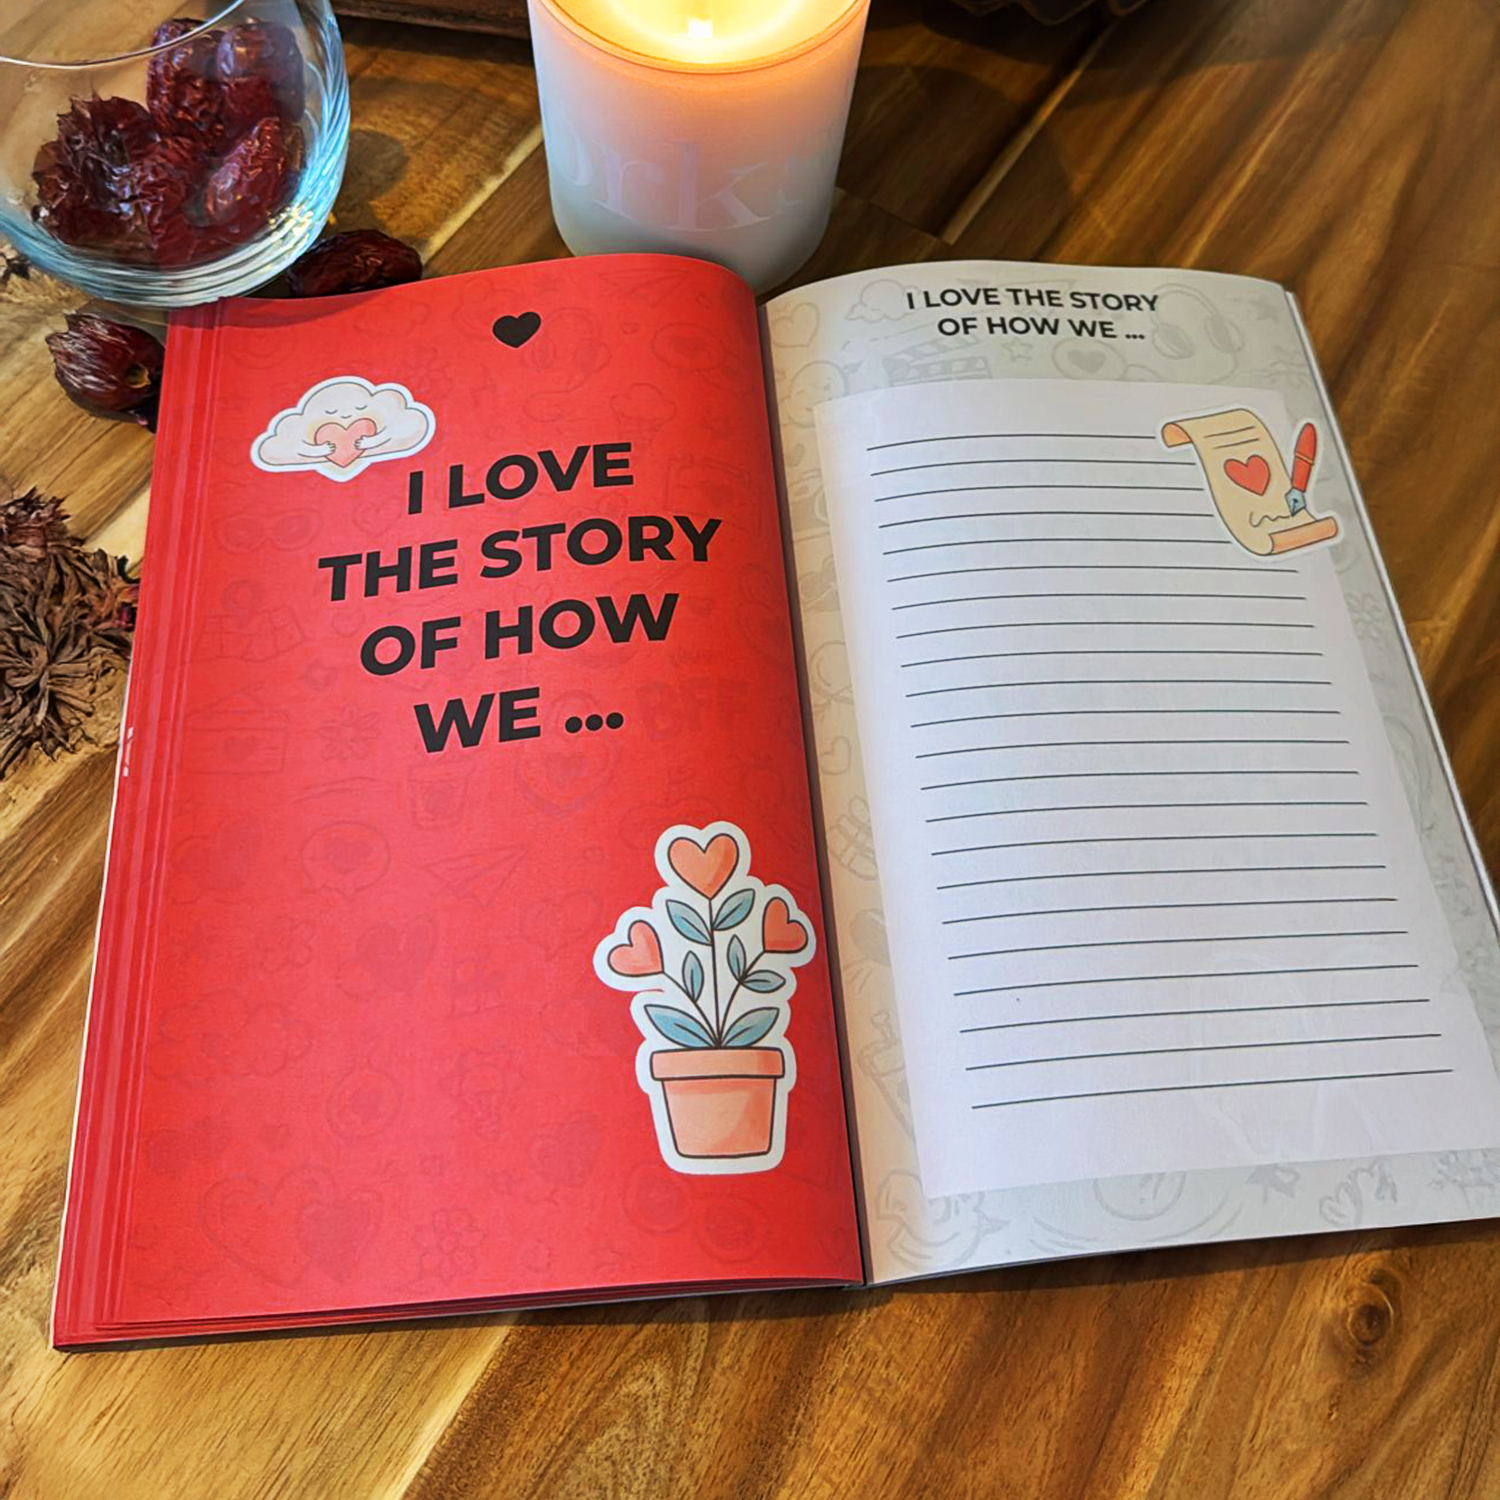 I LOVE
THE STORY
OF HOW
WE ...
BFF
I LOVE THE STORY
OF HOW WE ...